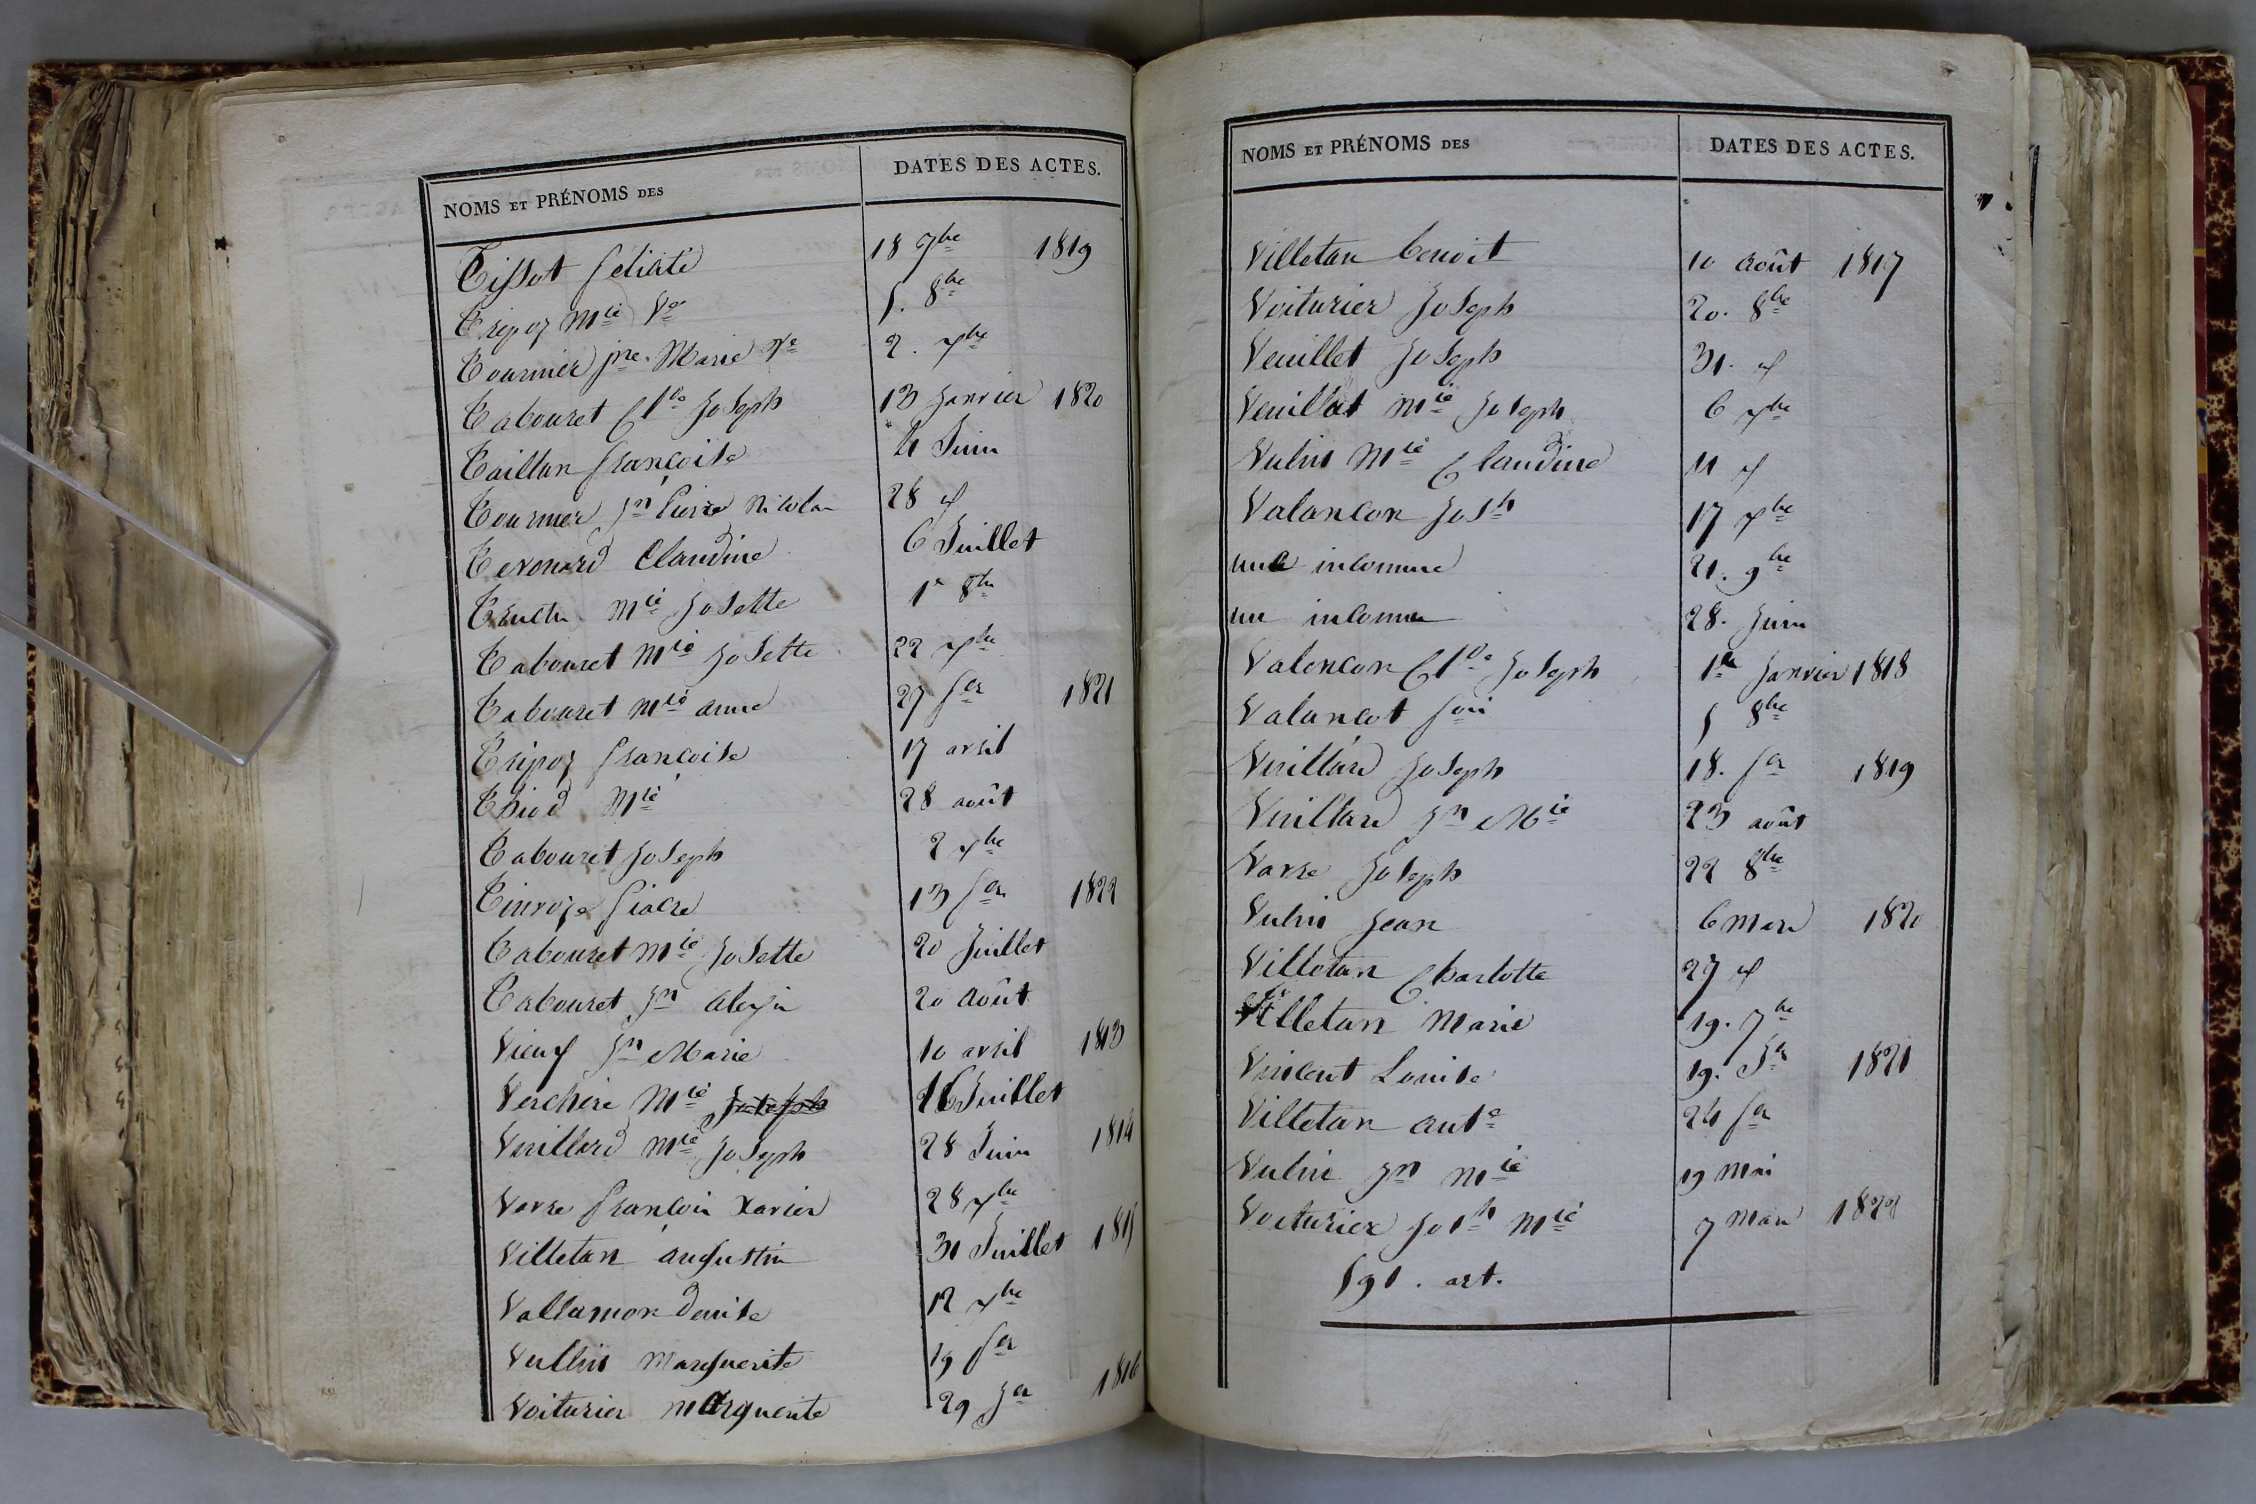 NOMS ET PRÉNOMS DES DATES DES ACTES.
Tissot felicité 18 7bre 1819
Tripoz Mie Ve 5. 8bre
Tournier jne. Marie Ve 2. xbre
Tabouret Cl de Joseph 13 Janvier 1820
Taillan françoise 4 Juin
Tournier Jn Pierre Nicolas 28 d
Tevenard Claudine 6 Juillet
Mie Josette 1er 8bre
Tabouret Mie Josette 22 xbre
Tabouret Mie anne 27 fer 1821
Tripoz françoise 17 avril
Thiod Mie 28 août
Tabouret Joseph 2 xbre
fiacre 13 fer 1822
Tabouret Mie Josette 20 Juillet
Tabouret Jn alexis 20 Août
Vieux Jn Marie 10 avril 1813
Verchere Mie Joseph 16 Juillet
Vuillard Mie Joseph 28 Juin 1814
Varre françois Xavier 28 xbre
Villetan augustin 31 Juillet 1815
Vallamon denise 12 xbre
Vullin Marguerite 19 fer
Voiturier Marguerite 29 Jer 1816
NOMS ET PRÉNOMS DES DATES DES ACTES.
Villetan benoit 10 Août 1817
Voiturier Joseph 20. 8bre
Veuillet Joseph 31. d
Veuillat Mie Joseph 6 xbre
Vulin Mie Claudine 11 d
Valancon Josh 17 xbre
une inconnue 21. 9bre
un inconnu 28. Juin
Valoncon Cl de Joseph 1er Janvier 1818
Valancot fois 5 8bre
Vuillard Joseph 18. fer 1819
Vuillard Jn Mie 23 août
Varre Joseph 22 8bre
Vulin Jean 6 Mars 1820
Villetan Charlotte 27 d
Villetan Marie 19. 7bre
Vincent Louise 19. Jer 1821
Villetan ante 24 fer
Vulin Jn Mie 19 Mai
Voiturier Josh Mie 7 Mars 1822
591. art.